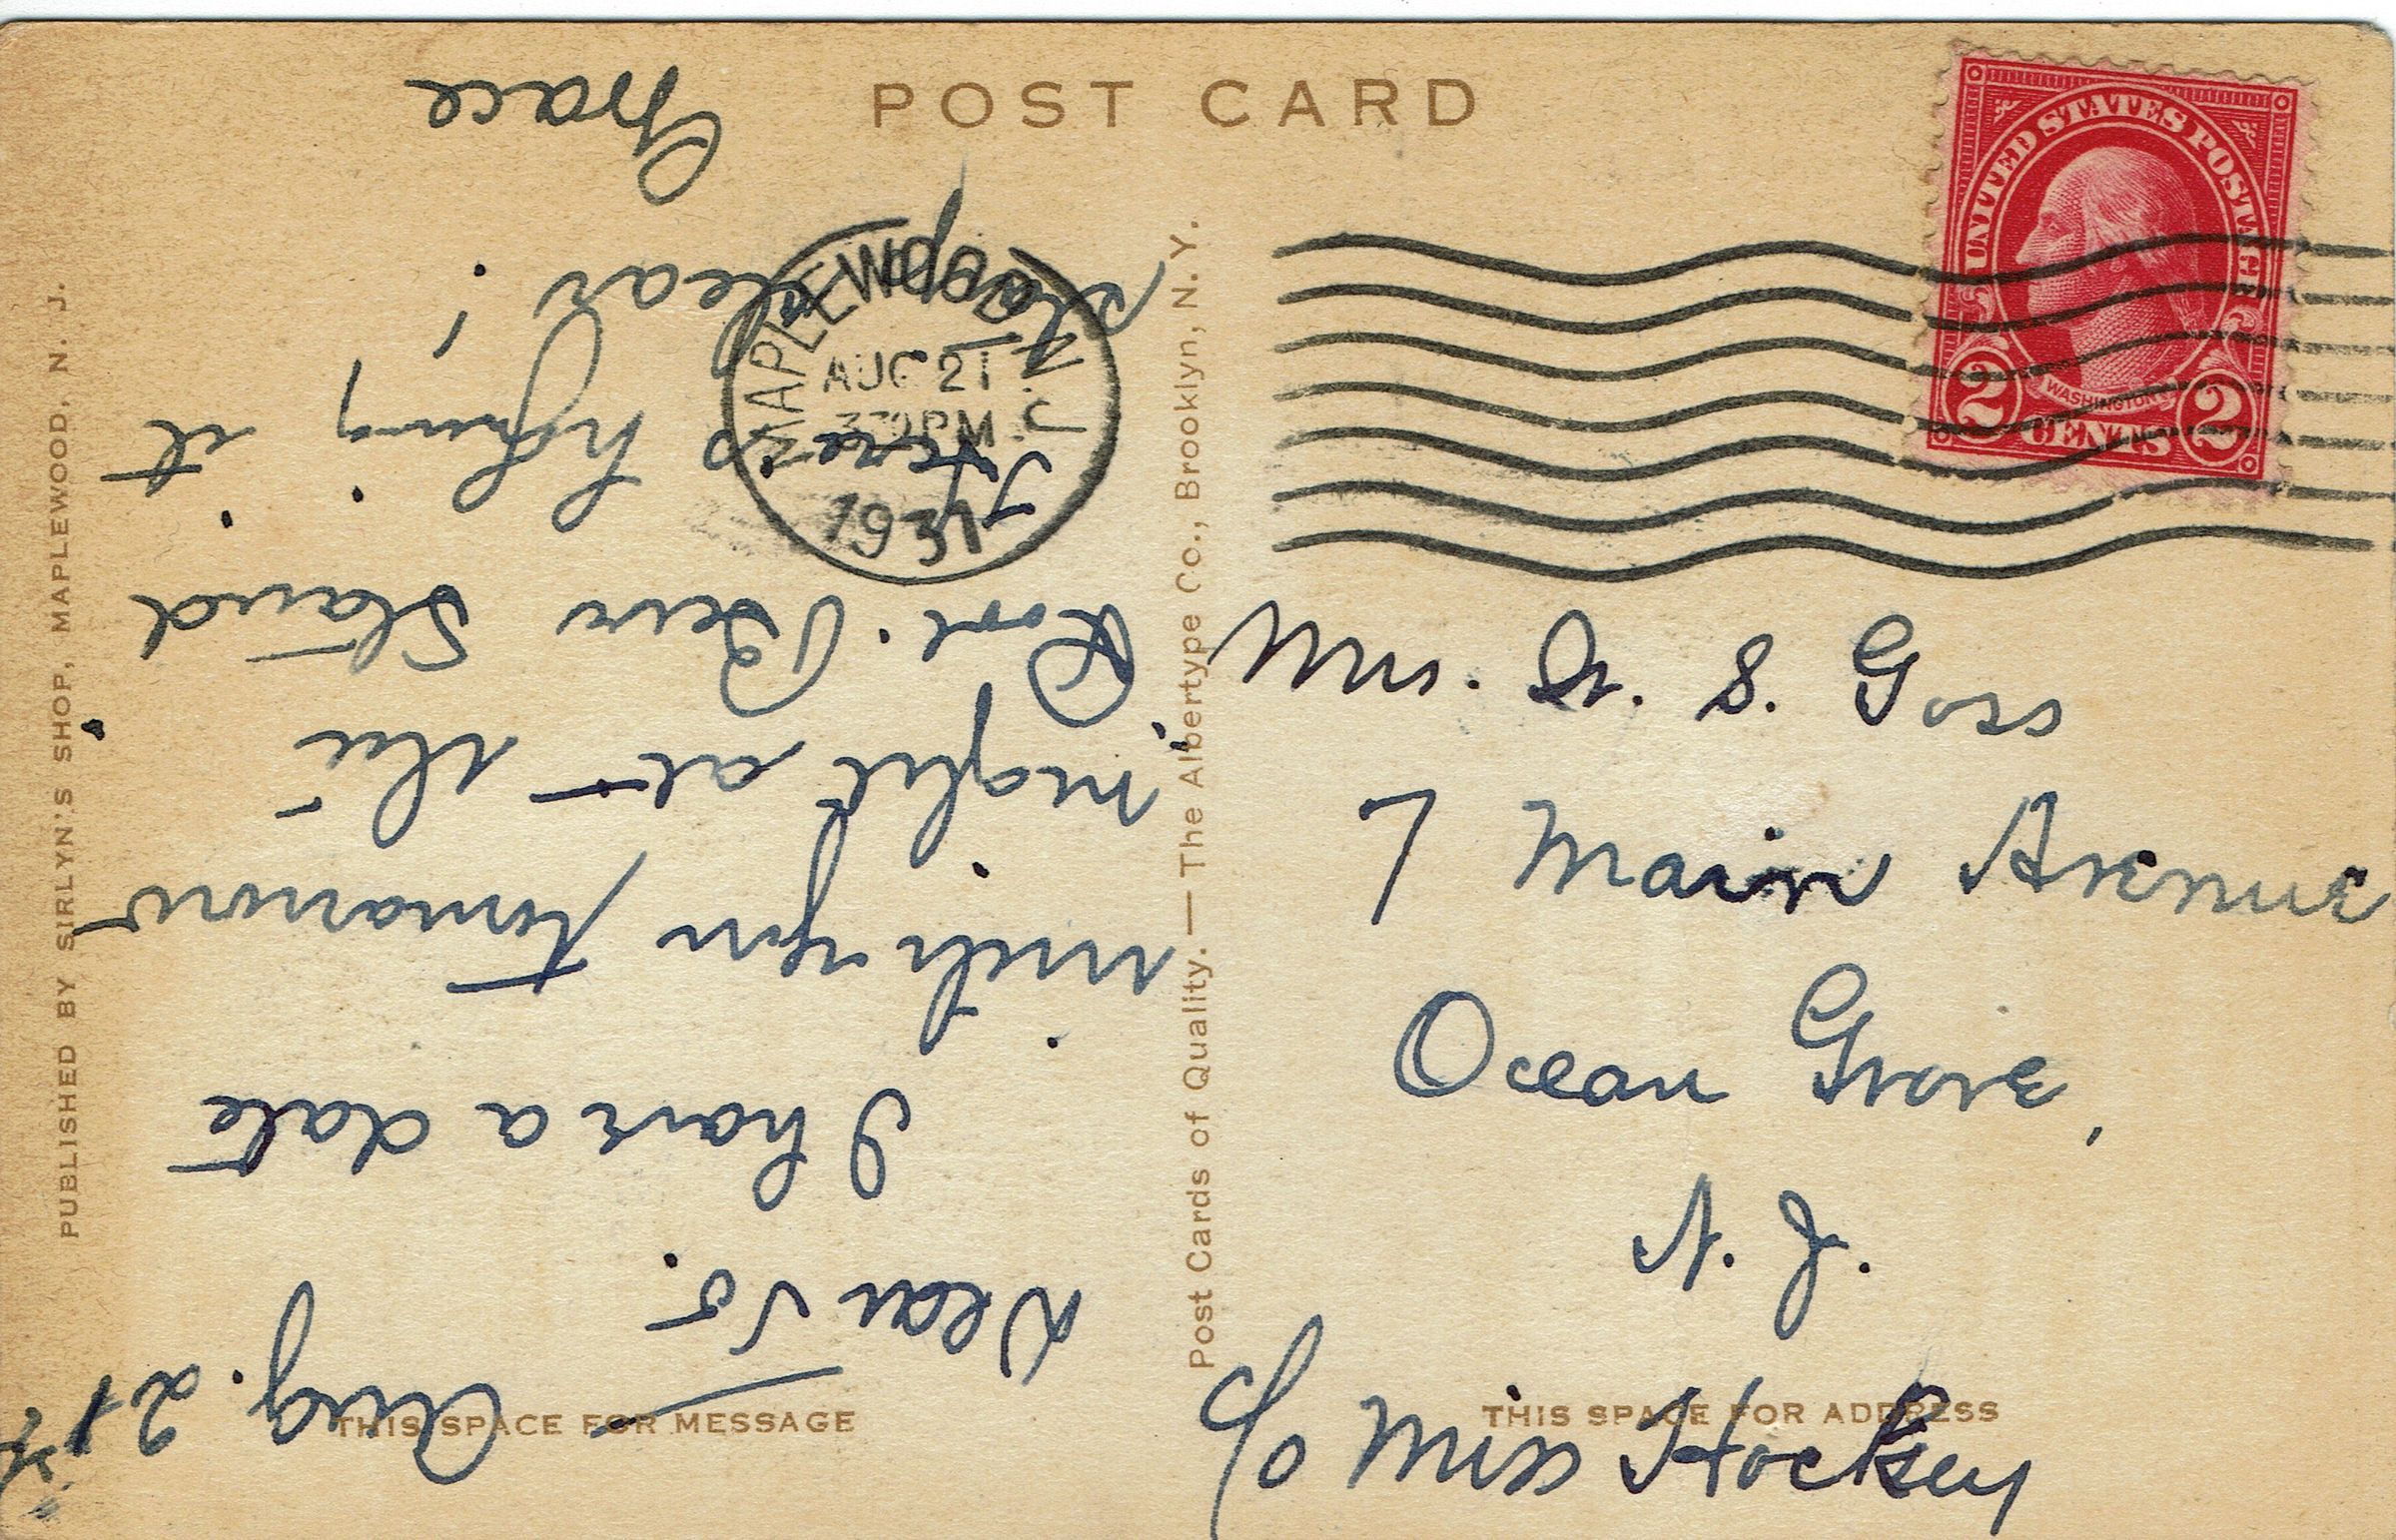 POST CARD
UNITED STATES POSTAGE
WASHINGTON
2 CENTS 2
MAPLEWOOD N. J.
AUG 21
330 PM
1931
PUBLISHED BY SIRLYN'S SHOP, MAPLEWOOD, N. J.
Post Cards of Quality. — The Albertype Co., Brooklyn, N. Y.
THIS SPACE FOR MESSAGE
Aug. 21st
Dear Jo.
I have a date
with you tomorrow
night at the
Here's hoping it
stays clear!
Grace
THIS SPACE FOR ADDRESS
S. Goss
7 Main Avenue
Ocean Grove,
N. J.
c/o Miss Hockey